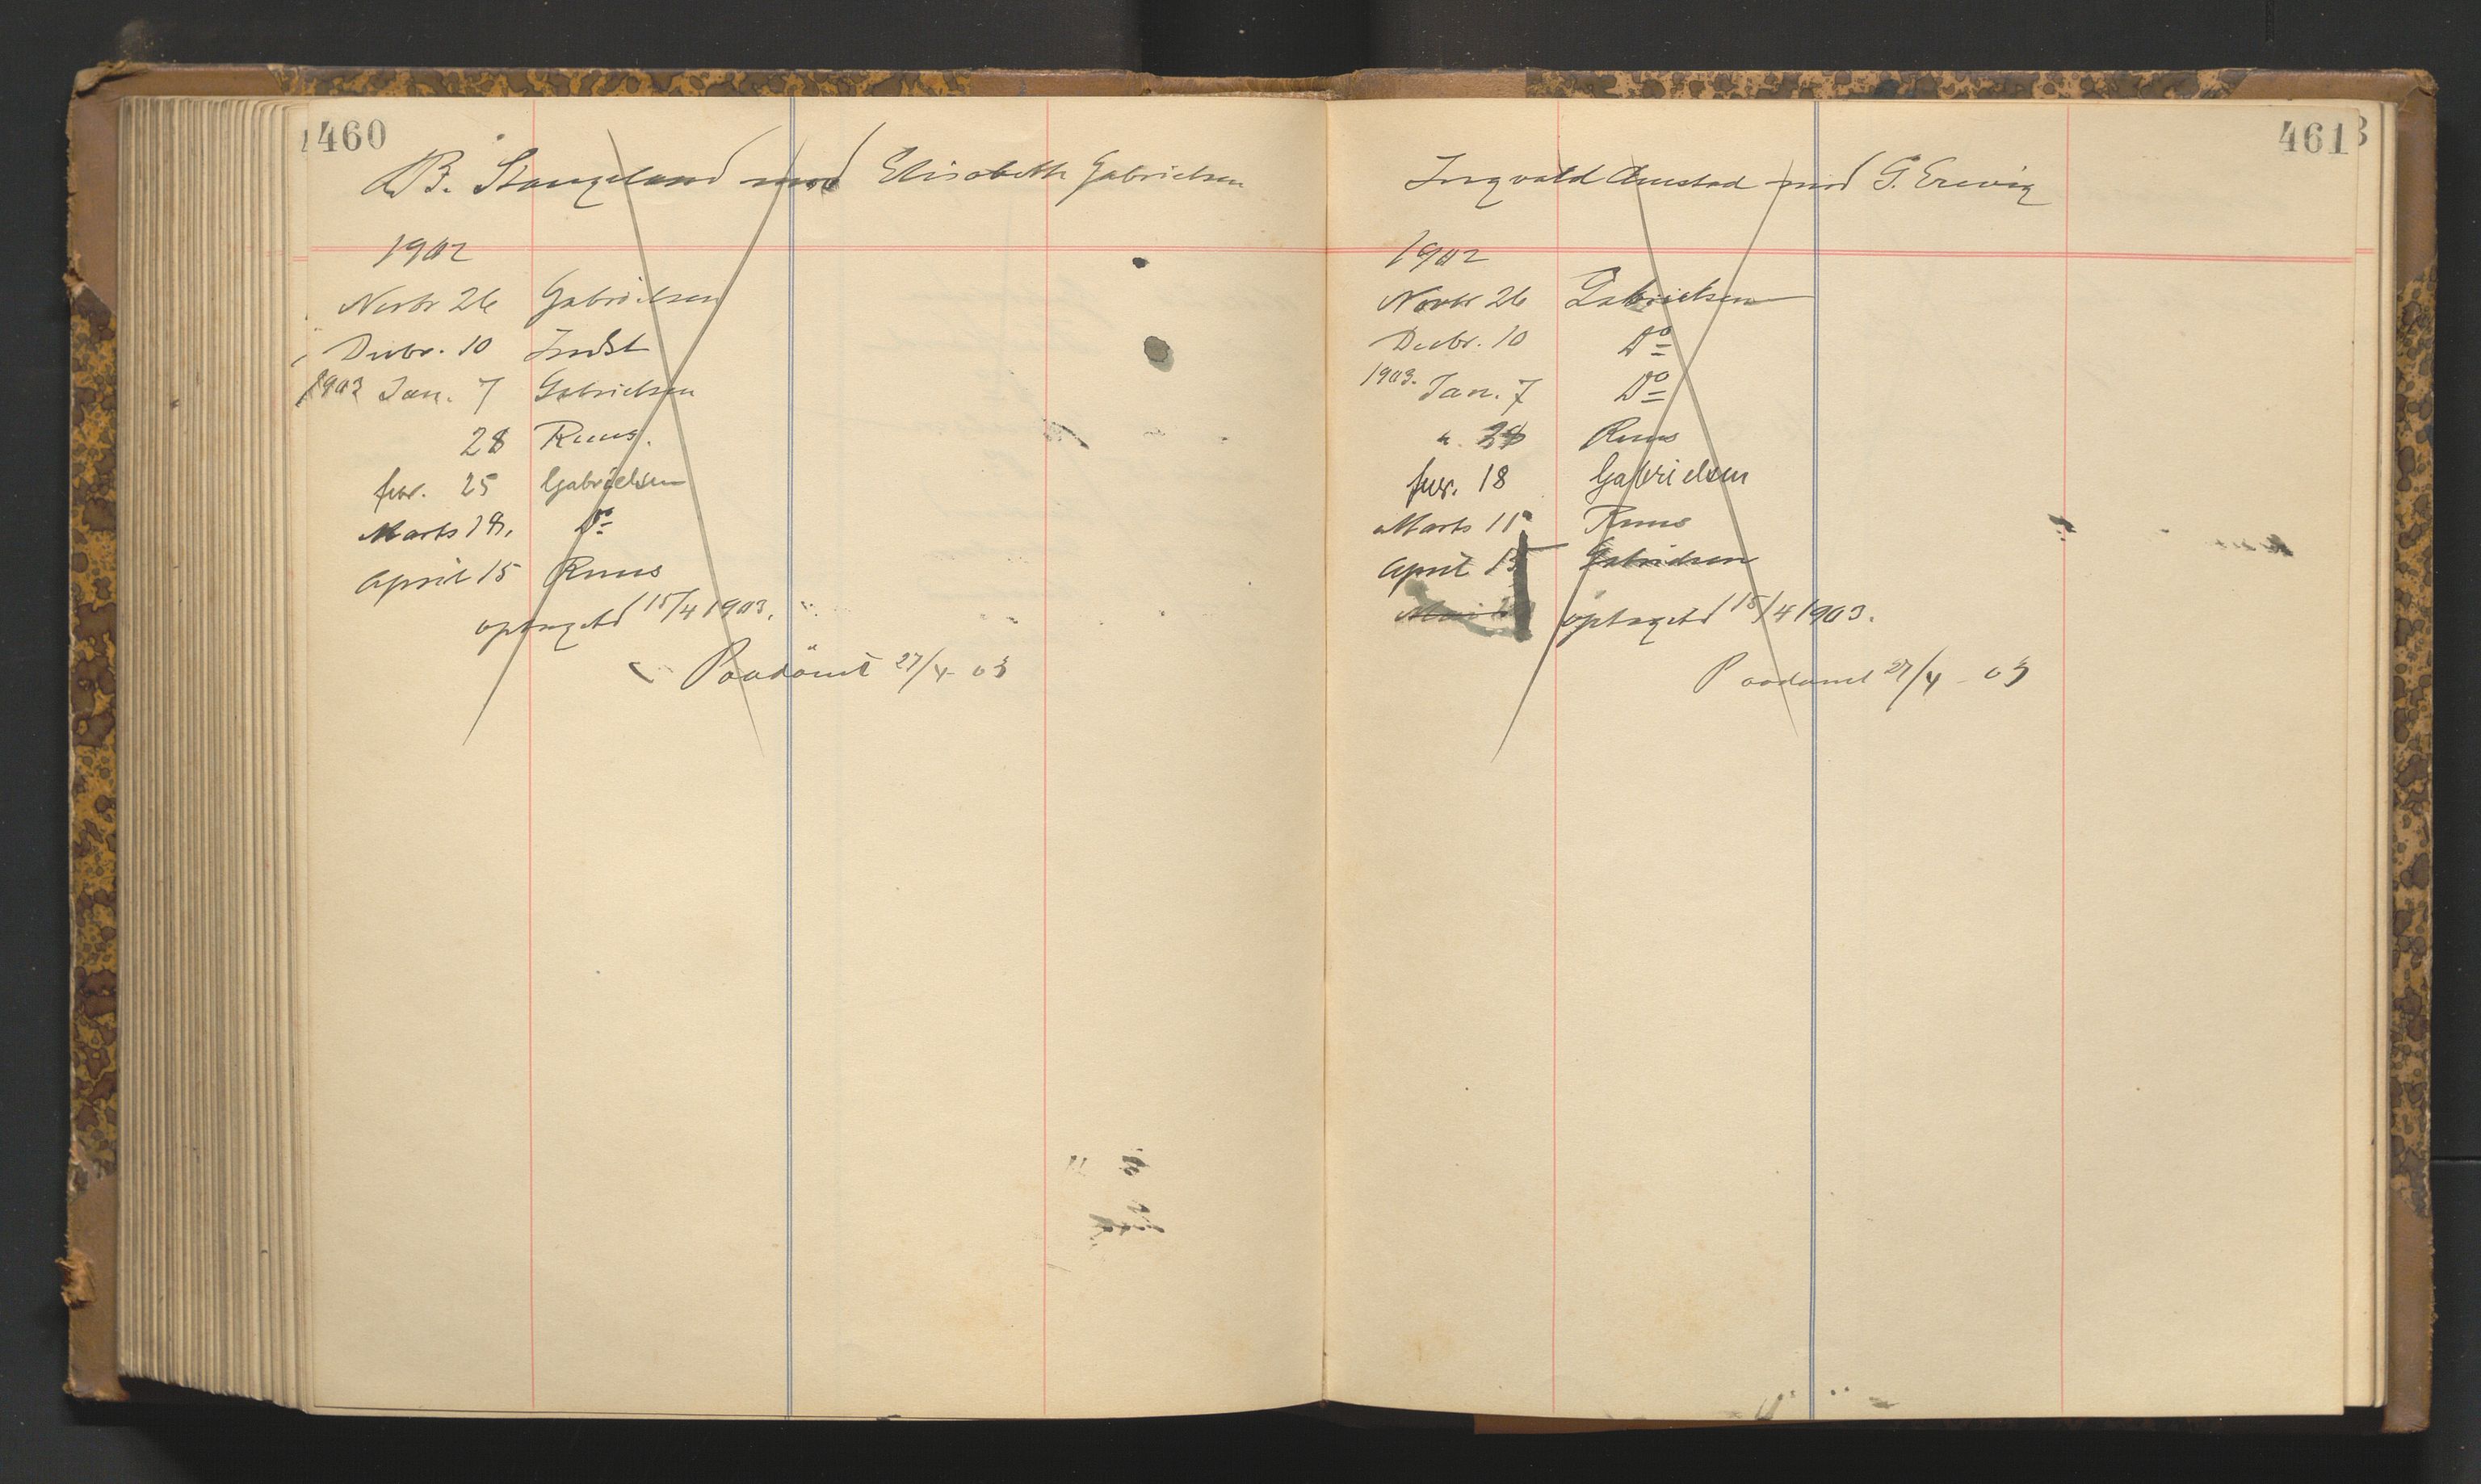 460
B. Stangeland mod Elisabeth Gabrielsen
1902
Novbr 26 Gabrielsen
Decbr. 10 Indst
1903 Jan. 7 Gabrielsen
28 Ruus.
febr. 25 Gabrielsen
Marts 18. Do
April 15 Ruus
optaget 15/4 1903.
Paadömt 27/4 03
461
Ingvald Aunstad mod G. Erevig
1902
Novbr 26 Gabrielsen
Decbr. 10 Do
1903. Jan. 7 Do
" 28 Ruus
febr. 18 Gabrielsen
Marts 11 Ruus
April 15 Gabrielsen
Mai optaget 15/4 1903.
Paadömt 27/4 03